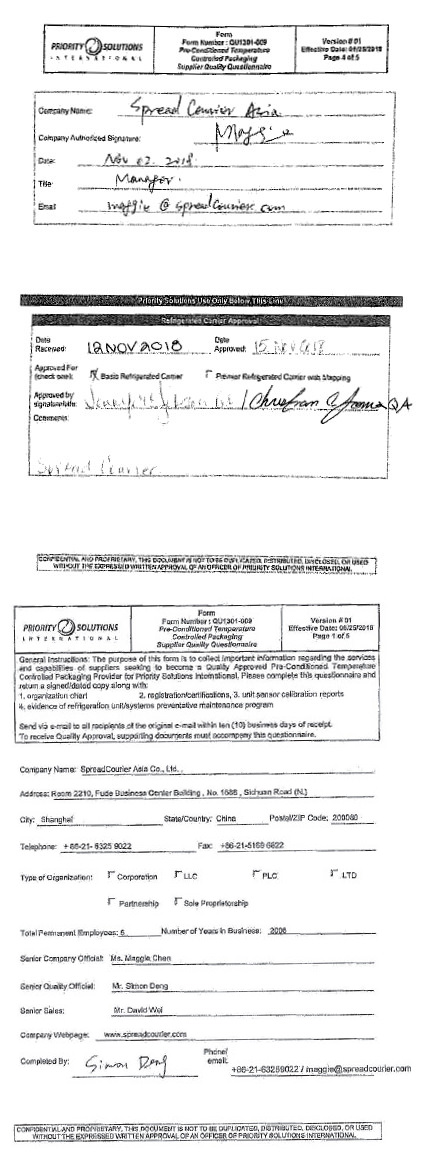 PRIORITY SOLUTIONS
INTERNATIONAL
Form
Form Number : QU1301-009
Pre-Conditioned Temperature
Controlled Packaging
Supplier Quality Questionnaire
Version # 01
Effective Date: 06/25/2018
Page 4 of 5
Company Name: Spread Courier Asia
Company Authorized Signature: Maggie
Date: Nov 02. 2018.
Title: Manager.
Email maggie @ spreadcourier.com
Priority Solutions Use Only Below This Line
Refrigerated Carrier Approval
Date Received: 12 NOV 2018
Date Approved: 15 NOV 2018
Approved For (check one):
Basic Refrigerated Carrier
Premier Refrigerated Carrier with Mapping
Approved by signature/title: QA
Comments:
Spread Courier
CONFIDENTIAL AND PROPRIETARY, THIS DOCUMENT IS NOT TO BE DUPLICATED, DISTRIBUTED, DISCLOSED, OR USED
WITHOUT THE EXPRESSED WRITTEN APPROVAL OF AN OFFICER OF PRIORITY SOLUTIONS INTERNATIONAL.
PRIORITY SOLUTIONS
INTERNATIONAL
Form
Form Number : QU1301-009
Pre-Conditioned Temperature
Controlled Packaging
Supplier Quality Questionnaire
Version # 01
Effective Date: 06/25/2018
Page 1 of 5
General Instructions: The purpose of this form is to collect important information regarding the services
and capabilities of suppliers seeking to become a Quality Approved Pre-Conditioned Temperature
Controlled Packaging Provider for Priority Solutions International. Please complete this questionnaire and
return a signed/dated copy along with:
1. organization chart 2. registration/certifications, 3. unit sensor calibration reports
4. evidence of refrigeration unit/systems preventative maintenance program
Send via e-mail to all recipients of the original e-mail within ten (10) business days of receipt.
To receive Quality Approval, supporting documents must accompany this questionnaire.
Company Name: SpreadCourier Asia Co., Ltd.
Address: Room 2210, Fude Business Center Building , No. 1688 , Sichuan Road (N.)
City: Shanghai State/Country: China Postal/ZIP Code: 200080
Telephone: +86-21- 6325 9022 Fax: +86-21-5169 6822
Type of Organization: Corporation LLC PLC LTD
Partnership Sole Proprietorship
Total Permanent Employees: 6 Number of Years in Business: 2006
Senior Company Official: Ms. Maggie Chen
Senior Quality Official: Mr. Simon Deng
Senior Sales: Mr. David Wei
Company Webpage: www.spreadcourier.com
Completed By: Simon Deng Phone/ email: +86-21-63259022 / maggie@spreadcourier.com
CONFIDENTIAL AND PROPRIETARY, THIS DOCUMENT IS NOT TO BE DUPLICATED, DISTRIBUTED, DISCLOSED, OR USED
WITHOUT THE EXPRESSED WRITTEN APPROVAL OF AN OFFICER OF PRIORITY SOLUTIONS INTERNATIONAL.